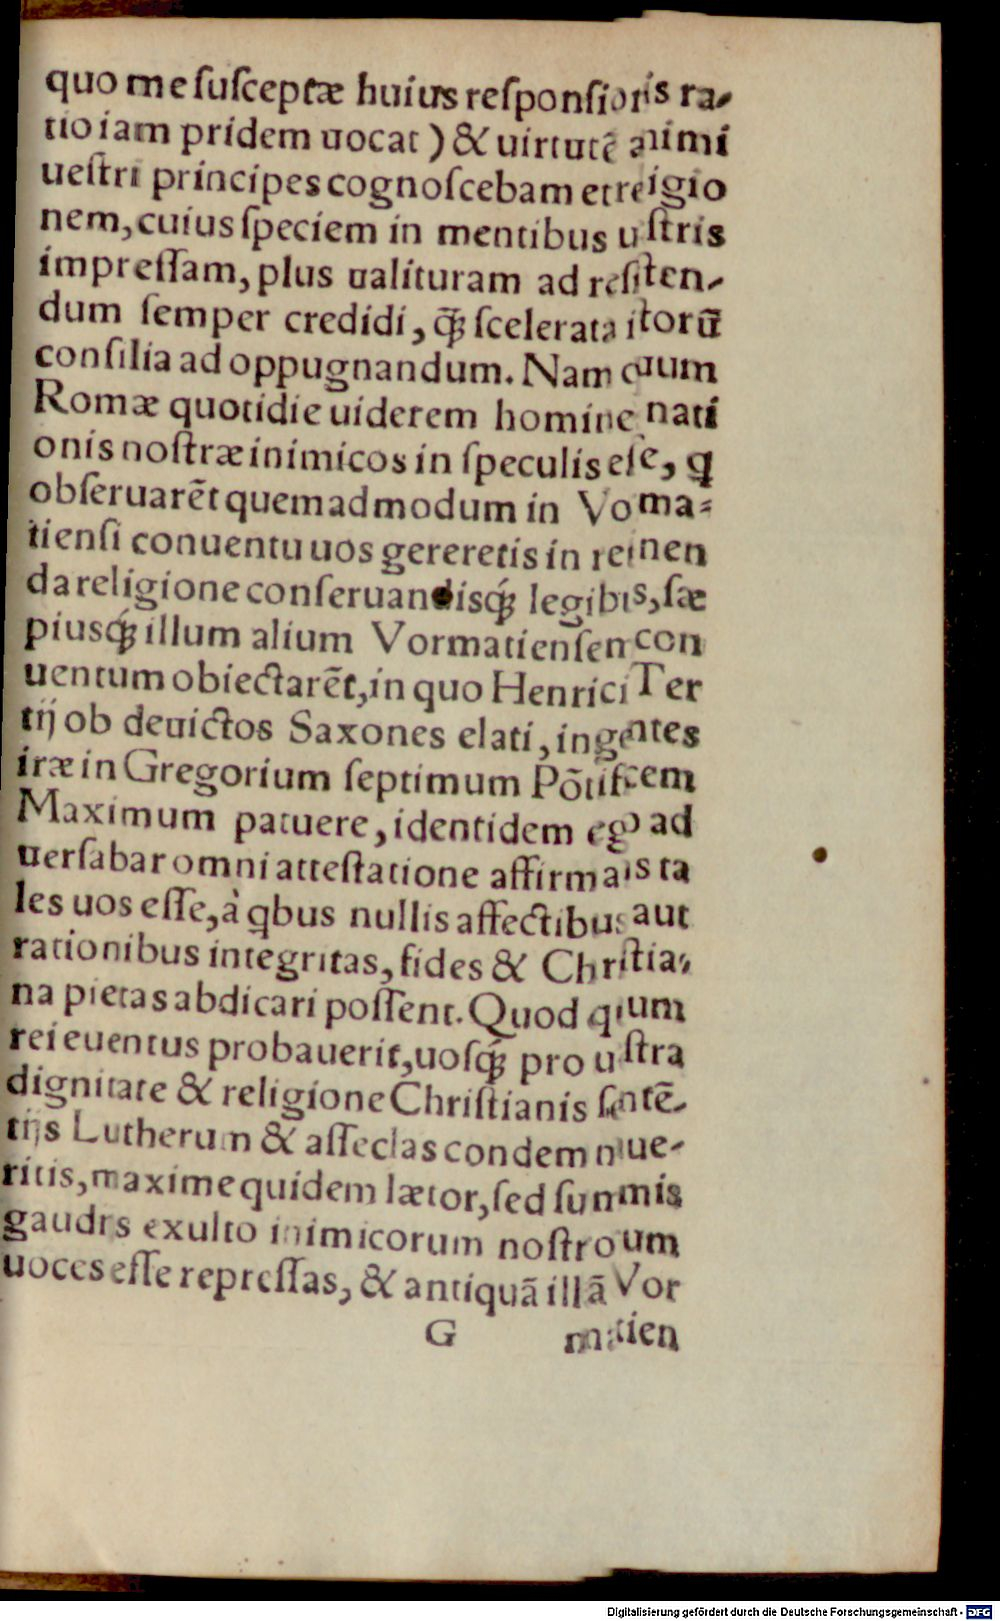 quo me ſuſceptæ huius reſponſionis ra-
tio iam pridem uocat) & uirtutē animi
ueſtri principes cognoſcebam et religio
nem, cuius ſpeciem in mentibus ueſtris
impreſſam, plus ualituram ad reſiſten-
dum ſemper credidi, q̃ꝫ ſcelerata iſtorū
conſilia ad oppugnandum. Nam cuum
Romæ quotidie uiderem homines nati
onis noſtræ inimicos in ſpeculis eſſe, ꝗ
obſeruarēt quemadmodum in Vorma-
tienſi conuentu uos gereretis in retinen
da religione conſeruandisq́ꝫ legibus, ſæ
piusq́ꝫ illum alium Vormatienſem con
uentum obiectarēt, in quo Henrici Ter
tij ob deuictos Saxones elati, ingentes
iræ in Gregorium ſeptimum Pōtificem
Maximum patuere, identidem ego ad
uerſabar omni atteſtatione affirmans ta
les uos eſſe, à ꝗbus nullis affectibus aut
rationibus integritas, fides & Chriſtia-
na pietas abdicari poſſent. Quod quum
rei euentus probauerit, uosq́ꝫ pro ueſtra
dignitate & religione Chriſtianis ſentē-
tijs Lutherum & aſſeclas condemnaue-
ritis, maxime quidem lætor, ſed ſummis
gaudijs exulto inimicorum noſtroum
uoces eſſe repreſſas, & antiquā illā Vor
G matien
Digitalisierung gefördert durch die Deutsche Forschungsgemeinschaft - DFG